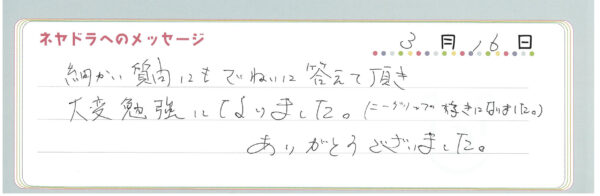 ネヤドラへのメッセージ
3月16日
細かい質問にもていねいに答えて頂き
大変勉強になりました。(ニーグリップが好きになりました。)
ありがとうございました。